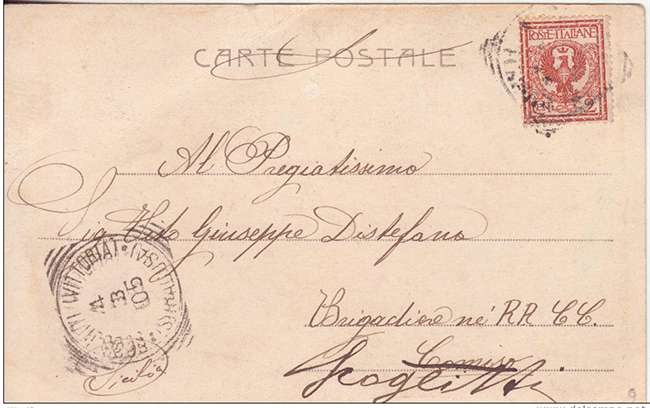 CARTE POSTALE
POSTE·ITALIANE
2
Al Pregiatissimo
Sig Vito Giuseppe Distefano
Brigadiere ne' RR CC.
Comiso
Scoglitti
Sicilia
(VITTORIA)
14
3
05
www.delcampe.net